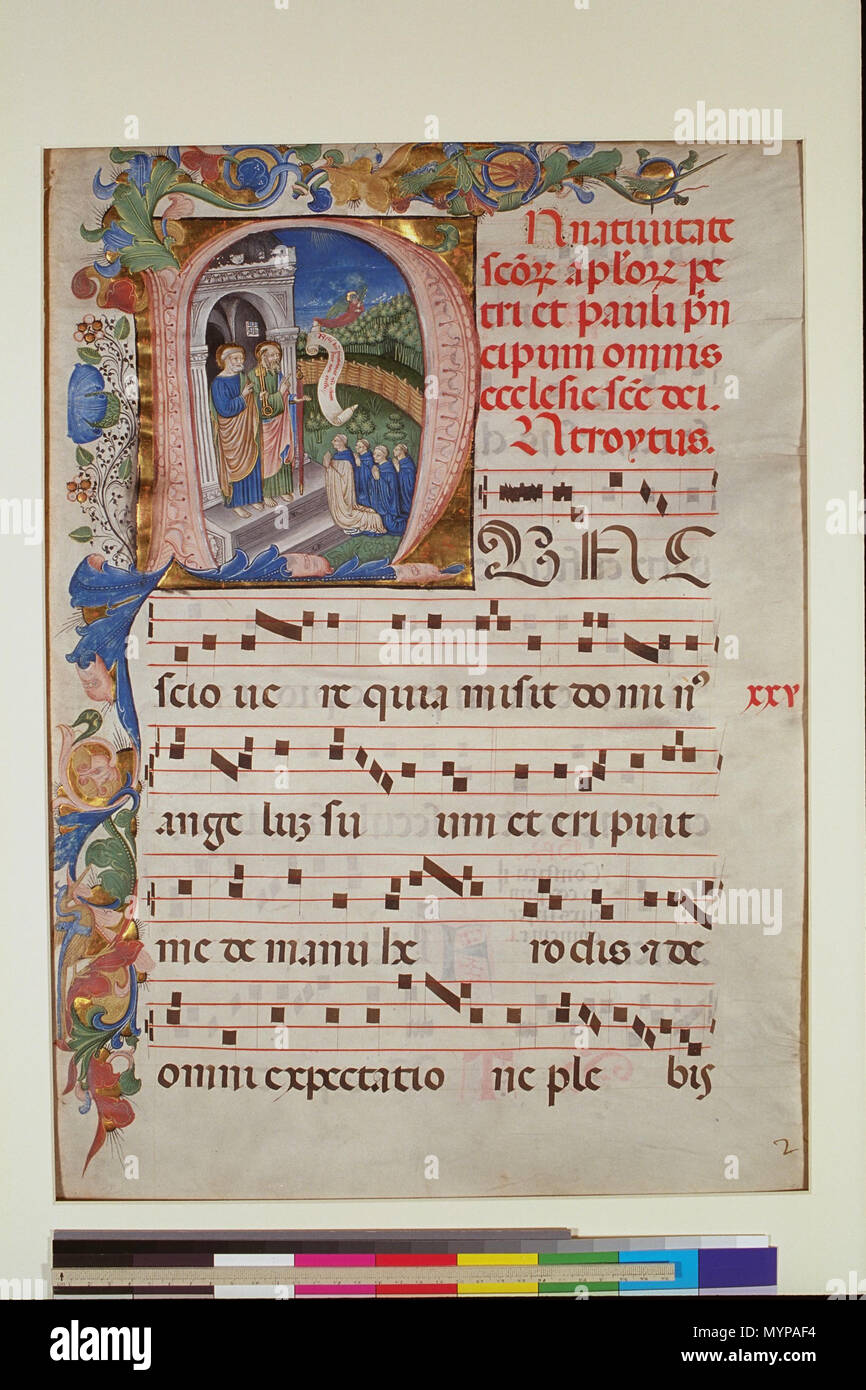 N natiuitate
scōꝝ aplōꝝ pe
tri et pauli pṅ
cipum omnis
ecclesie scē dei.
Ntroytus.
N
VNC
scio ue re quia misit domin⁹ xxv
ange luꝫ su um et eripuit
me de manu he rodis ⁊ de
omni expectatio ne ple bis
2
alamy
alamy
Image ID: MYPAF4
www.alamy.com